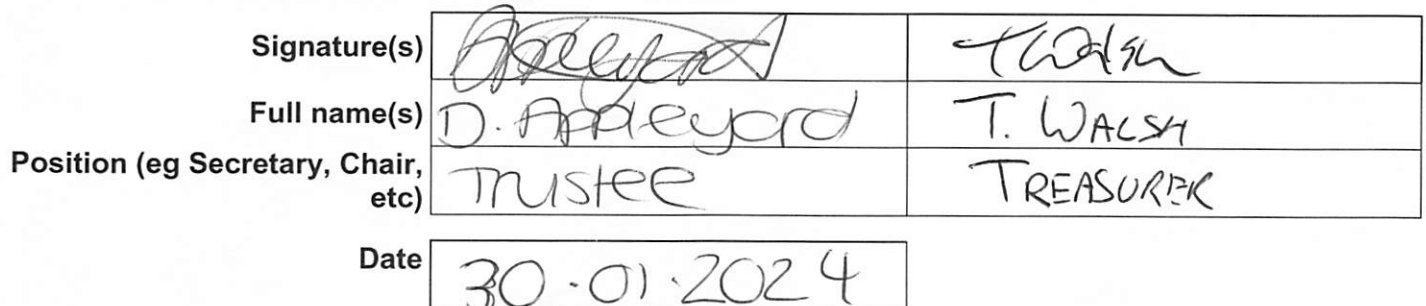 Signature(s) Appleyard T Walsh
Full name(s) D. Appleyard T. WALSH
Position (eg Secretary, Chair, etc) Trustee TREASURER
Date 30.01.2024